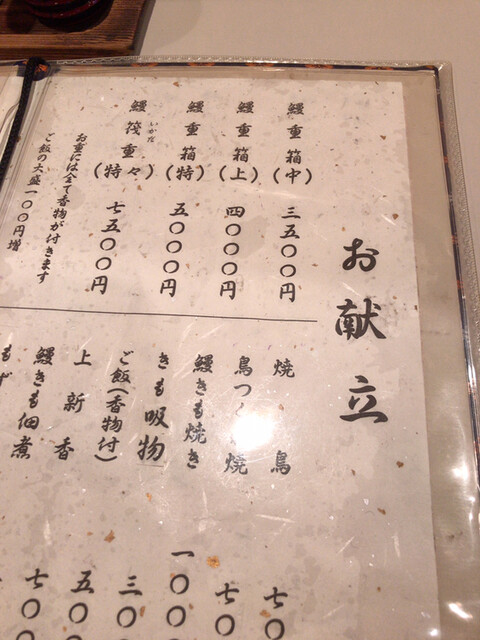 お献立
鰻重箱(中) 三五〇〇円
鰻重箱(上) 四〇〇〇円
鰻重箱(特) 五〇〇〇円
鰻筏重(特々) 七五〇〇円
いかだ
お重には全て香物が付きます
ご飯の大盛一〇〇円増
焼鳥 七〇
鳥つくね焼 七〇
鰻きも焼き 一〇〇
きも吸物 三〇
ご飯(香物付) 五〇
上新香 七〇
鰻きも佃煮
もず